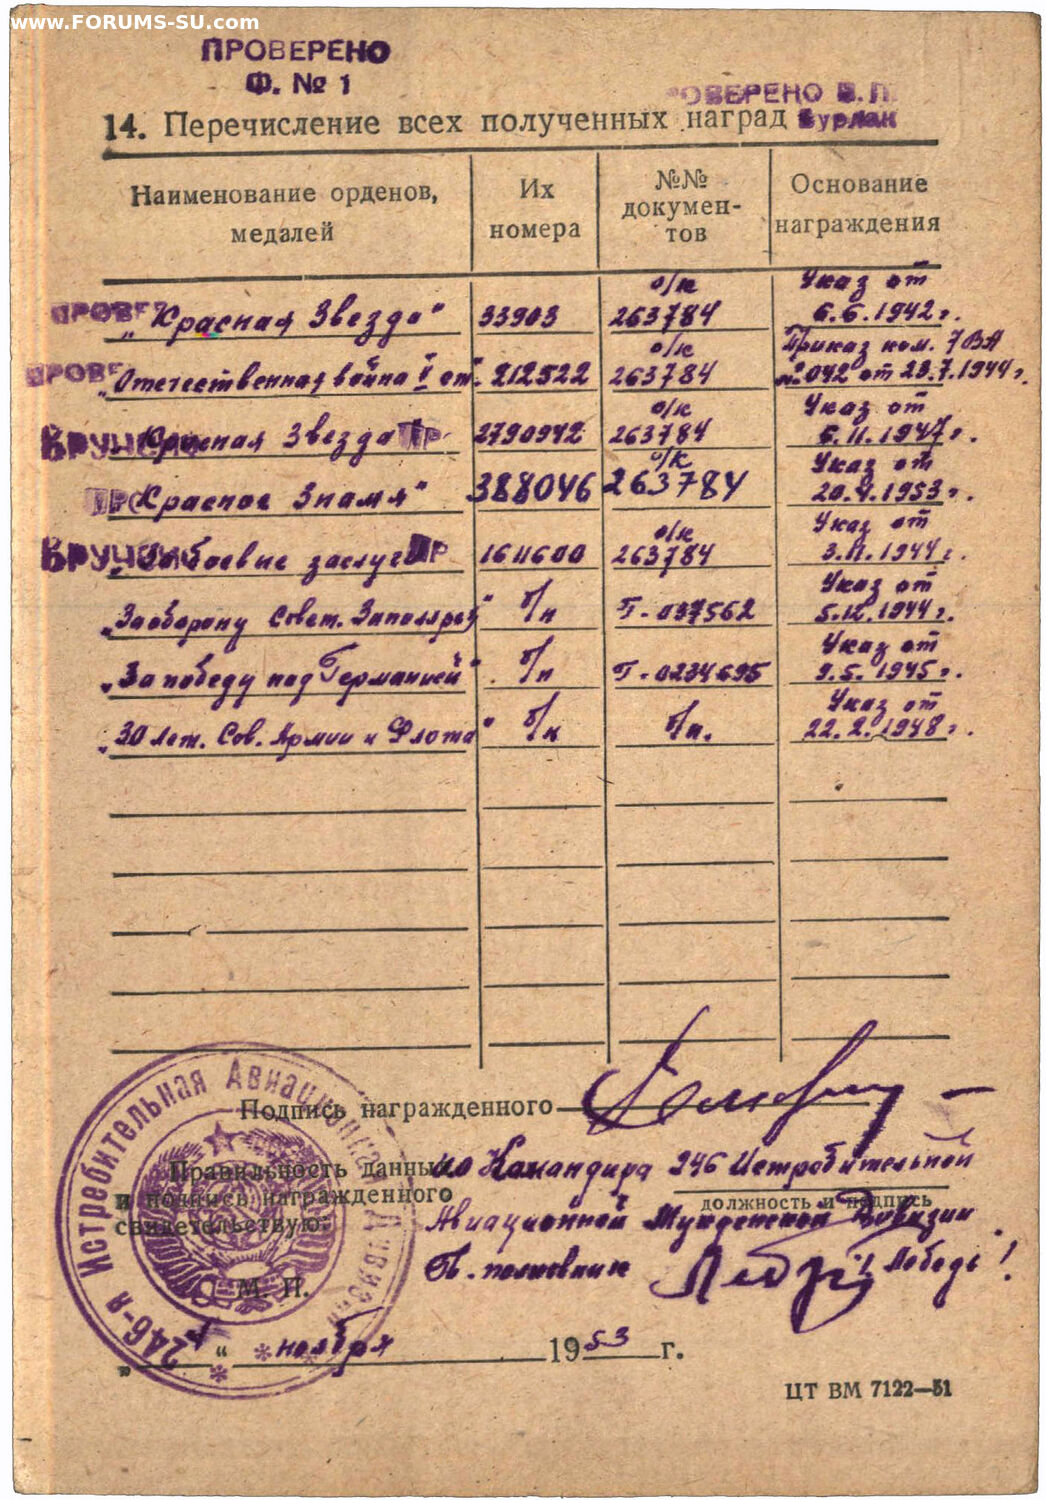 www.FORUMS-SU.com
ПРОВЕРЕНО
Ф. № 1
ОВЕРЕНО В.П.
Бурлак
14. Перечисление всех полученных наград
Наименование орденов, медалей
Их номера
№№ докумен-тов
Основание награждения
ПРОВЕ „Красная Звезда" 33903 о/к 263784 Указ от 6.6.1942г.
ПРОВЕ „Отечественная война II ст." 212522 о/к 263784 Приказ ком. 7ВА № 042 от 23.7.1944г.
ВРУЧЕНО Красная Звезда ПР 2790942 о/к 263784 Указ от 6.11.1947г.
ПРО Красное Знамя" 388046 о/к 263784 Указ от 20.4.1953г.
ВРУЧЕНО За боевые заслуги ПР 1611600 о/к 263784 Указ от 3.11.1944г.
„За оборону Совет. Заполярья" б/н Г-037562 Указ от 5.12.1944г.
„За победу над Германией" б/н Г-0234695 Указ от 9.5.1945г.
„30 лет. Сов. Армии и Флота" б/н б/н. Указ от 22.2.1948г.
Подпись награжденного
Правильность данных
и подписи награжденного
свидетельствую:
ио Командира 246 Истребительной
должность и подпись
Авиационной Мукденской Дивизии
П.полковник /Лебедь/
М. П.
246-я Истребительная Авиационная Дивизия
„ " ноября 1953 г.
ЦТ ВМ 7122—51